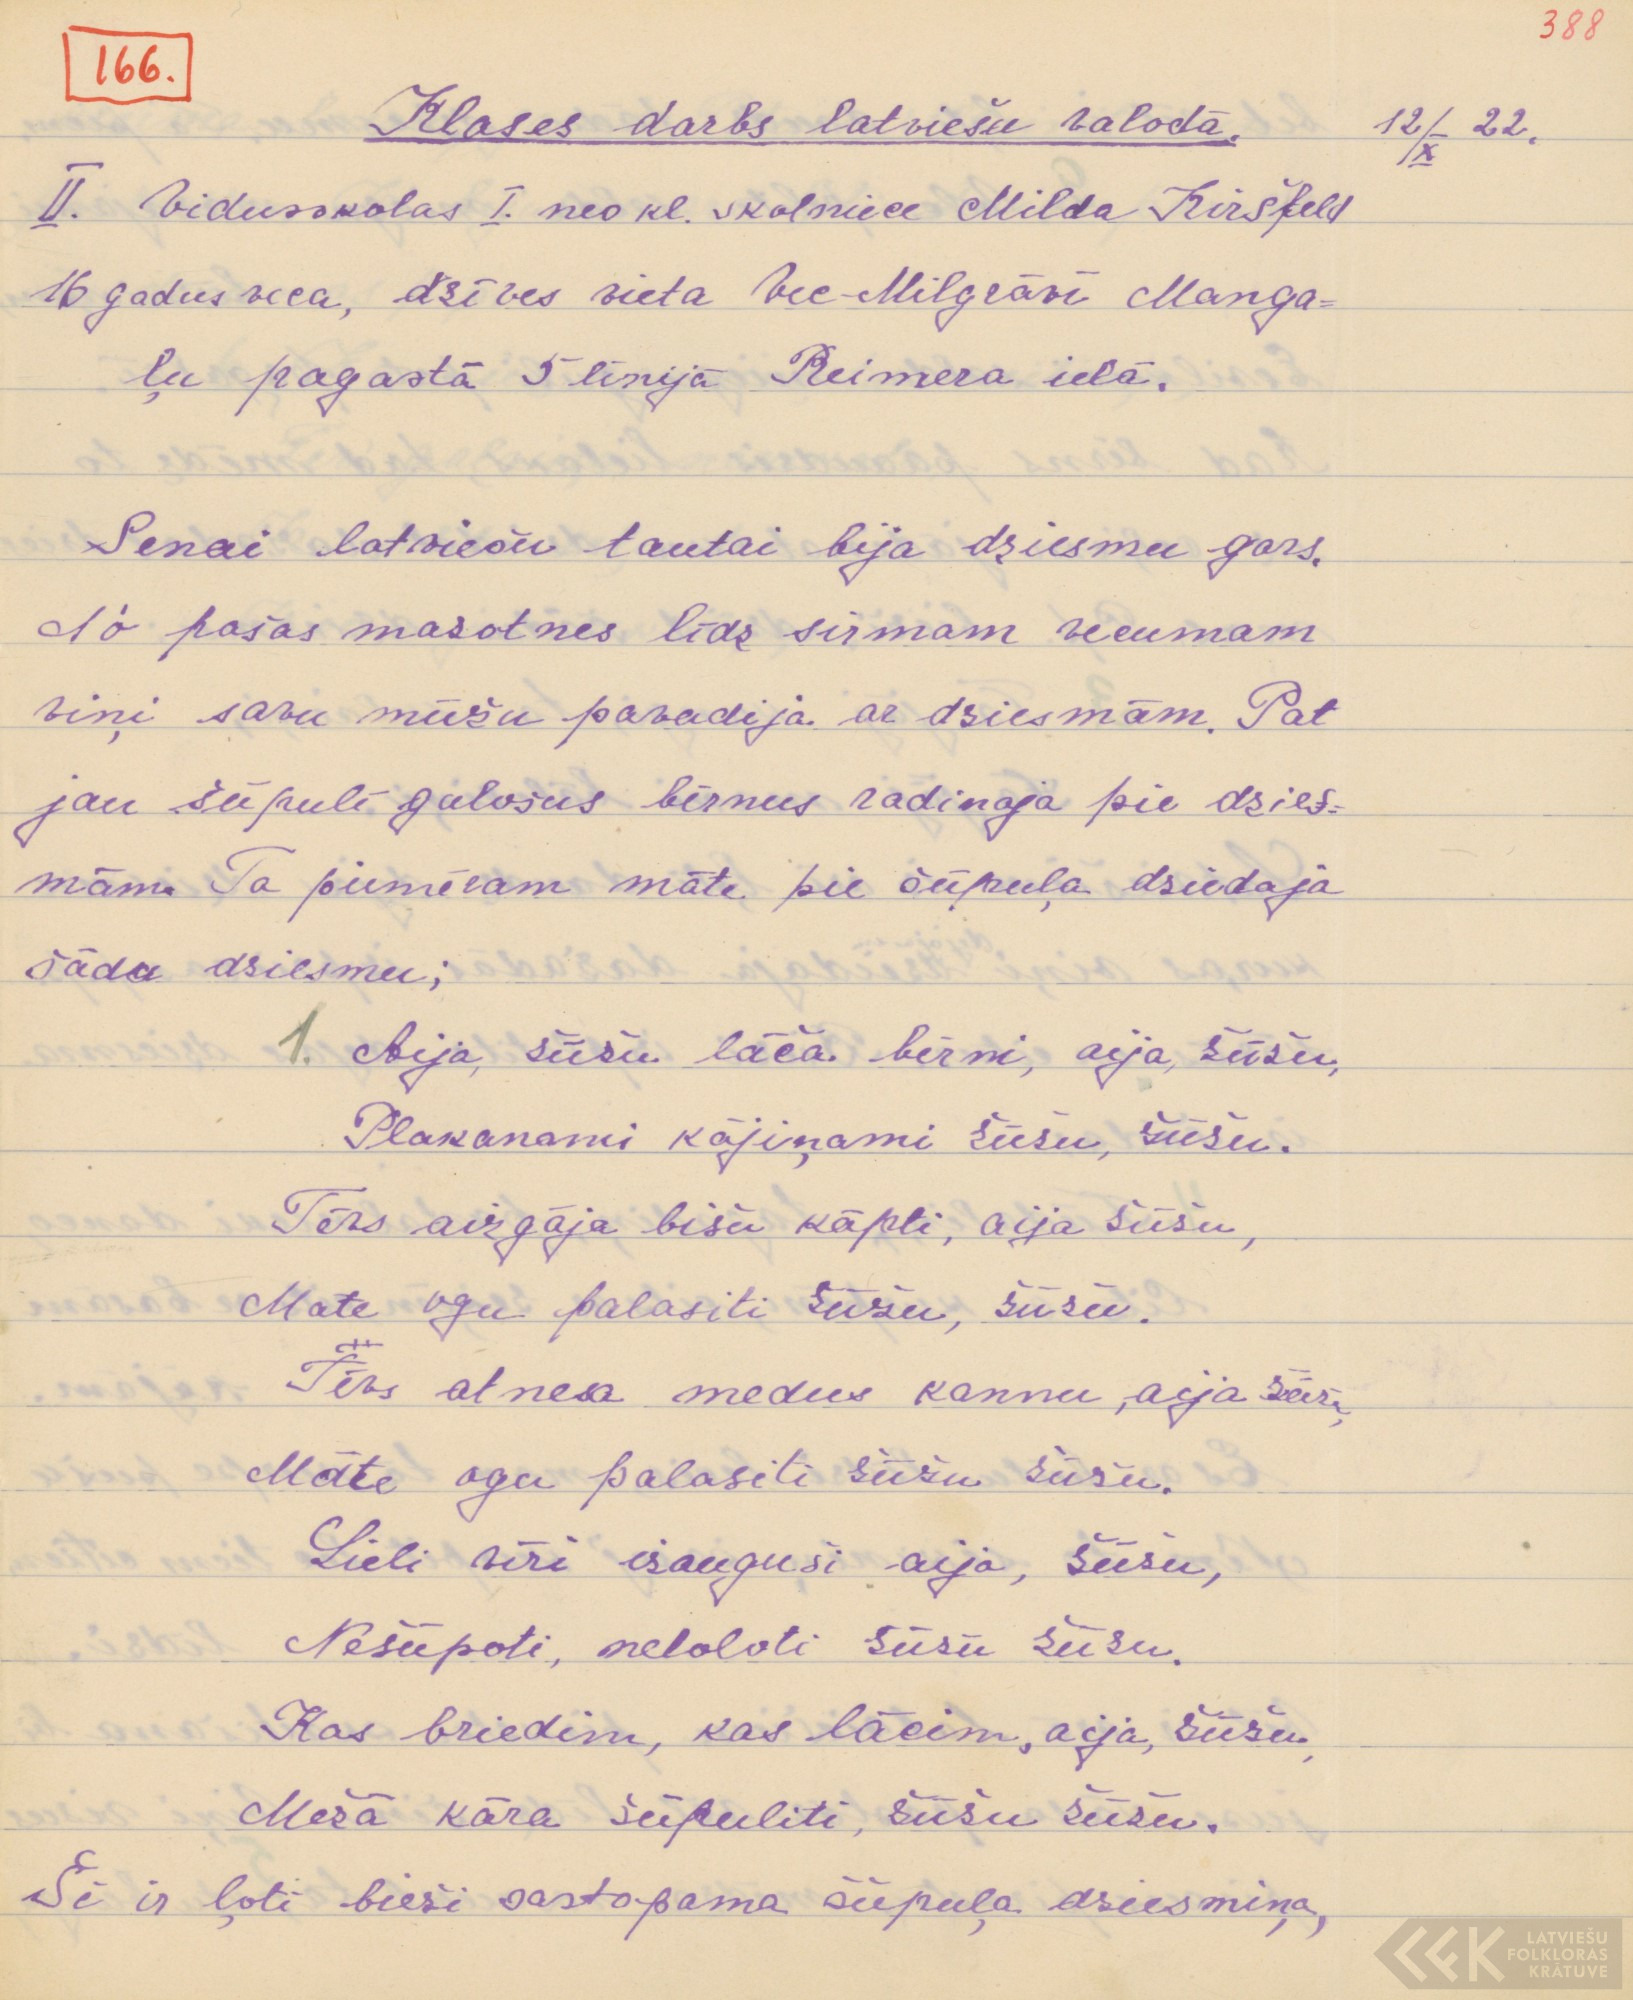 388
166.
Klases darbs latviešu valodā. 12/X 22.
II. Vidusskolas I. neo kl. skolniece Milda Kiršfeld
16 gadus veca, dzīves vieta Vec-Milgrāvī Manga=
ļu pagastā 5 līnijā Reimera ielā.
Senai latviešu tautai bija dziesmu gars.
No pašas mazotnes līdz sirmam vecumam
viņi savu mūžu pavadija ar dziesmām. Pat
jau šūpulī gulošus bērnus radinaja pie dzies=
mām. Ta piemēram māte pie šūpuļa dziedaja
šādu dziesmu;
1. Aija, žūžu lāča bērni, aija, žūžu,
Plakanami kājiņami žūžu, žūžu.
Tēvs aizgāja bišu kāpti, aija žūžu,
Mate ogu palasiti žūžu, žūžu.
Tēvs atnesa medus kannu, aija žūžu,
Māte ogu palasiti žūžu žūžu.
Lieli vīri izauguši aija, žūžu,
Nešūpoti, neloloti žūžu žūžu.
Kas briedim, kas lācim, aija, žūžu,
Mežā kāra šūpuliti, žūžu žūžu.
Šī ir ļoti bieži sastopama šūpuļa dziesmiņa,
LATVIEŠU
FOLKLORAS
KRĀTUVE